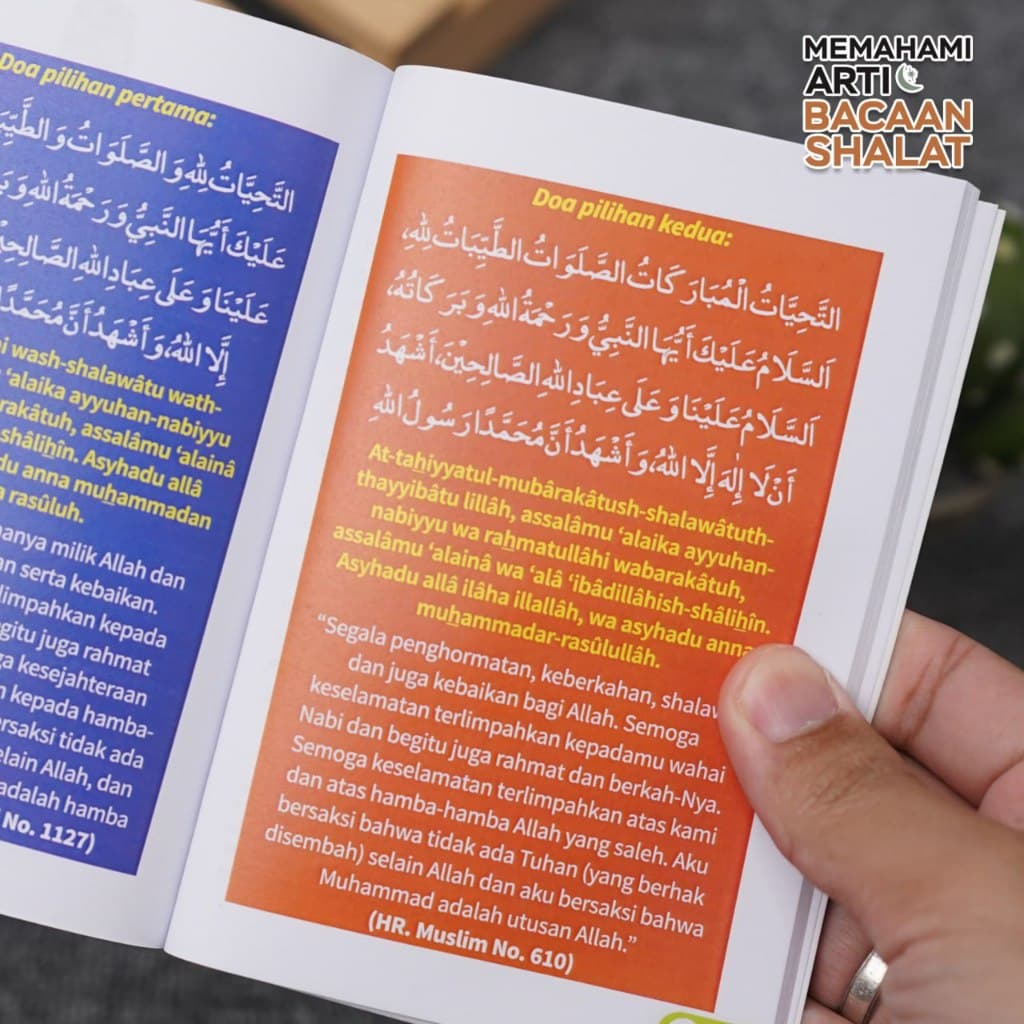 MEMAHAMI
ARTI
BACAAN
SHALAT
Doa pilihan pertama:
التَّحِيَّاتُ لِلّٰهِ وَ الصَّلَوَاتُ وَ الطَّيِّبَ
عَلَيْكَ أَيُّهَا النَّبِيُّ وَ رَحْمَةُ اللهِ وَ بَرَ
عَلَيْنَا وَ عَلَى عِبَادِ اللهِ الصَّالِحِيْ
إِلَّا اللهُ، وَ أَشْهَدُ أَنَّ مُحَمَّدًا
wash-shalawâtu wath-
‘alaika ayyuhan-nabiyyu
rakâtuh, assalâmu ‘alainâ
shâlihîn. Asyhadu allâ
du anna muhammadan
rasûluh.
hanya milik Allah dan
an serta kebaikan.
limpahkan kepada
egitu juga rahmat
ga kesejahteraan
n kepada hamba-
ersaksi tidak ada
elain Allah, dan
adalah hamba
No. 1127)
Doa pilihan kedua:
التَّحِيَّاتُ الْمُبَارَ كَاتُ الصَّلَوَاتُ الطَّيِّبَاتُ لِلّٰهِ،
اَلسَّلَامُ عَلَيْكَ أَيُّهَا النَّبِيُّ وَ رَحْمَةُ اللهِ وَ بَرَ كَاتُهُ،
اَلسَّلَامُ عَلَيْنَا وَ عَلَى عِبَادِ اللهِ الصَّالِحِيْنَ، أَشْهَدُ
أَنْ لَا إِلٰهَ إِلَّا اللهُ، وَ أَشْهَدُ أَنَّ مُحَمَّدًا رَسُولُ اللهِ
At-tahiyyatul-mubârakâtush-shalawâtuth-
thayyibâtu lillâh, assalâmu ‘alaika ayyuhan-
nabiyyu wa rahmatullâhi wabarakâtuh,
assalâmu ‘alainâ wa ‘alâ ‘ibâdillâhish-shâlihîn.
Asyhadu allâ ilâha illallâh, wa asyhadu anna
muhammadar-rasûlullâh.
“Segala penghormatan, keberkahan, shalaw
dan juga kebaikan bagi Allah. Semoga
keselamatan terlimpahkan kepadamu wahai
Nabi dan begitu juga rahmat dan berkah-Nya.
Semoga keselamatan terlimpahkan atas kami
dan atas hamba-hamba Allah yang saleh. Aku
bersaksi bahwa tidak ada Tuhan (yang berhak
disembah) selain Allah dan aku bersaksi bahwa
Muhammad adalah utusan Allah.”
(HR. Muslim No. 610)